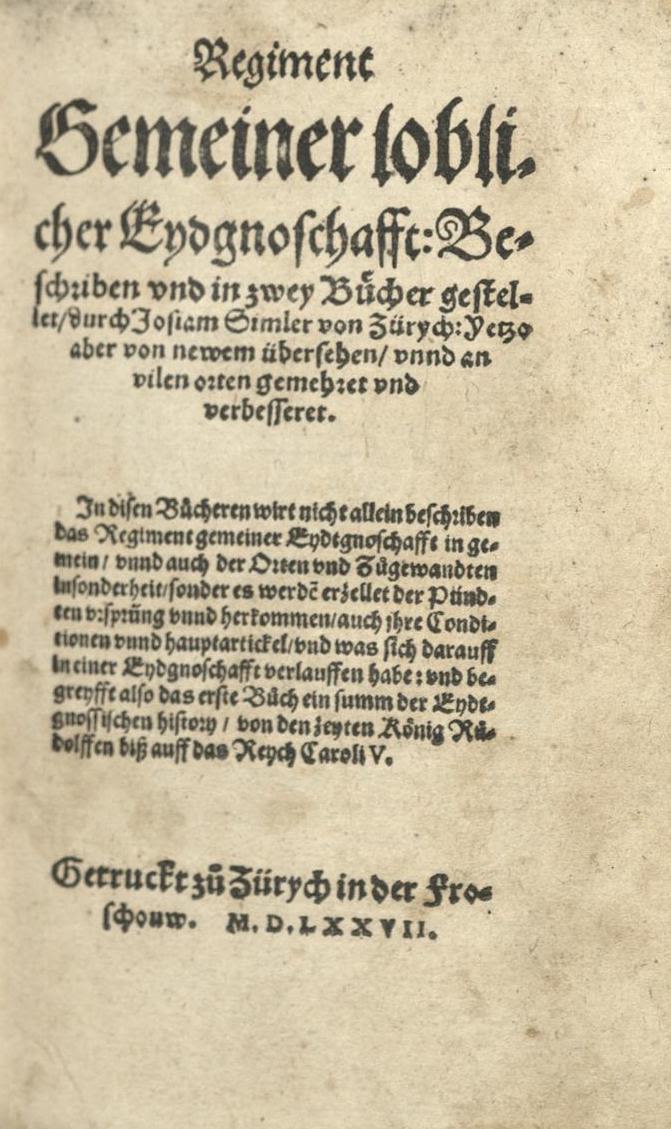 Regiment
Gemeiner lobli-
cher Eydgnoschafft: Be-
schriben vnd in zwey Bücher gestel-
let/durch Josiam Simler von Zürych: Yetzo
aber von newem übersehen/ vnnd an
vilen orten gemehret vnd
verbesseret.
In disen Bücheren wirt nicht allein beschriben
das Regiment gemeiner Eydtgnoschafft in ge-
mein / vnnd auch der Orten vnd Zůgewandten
insonderheit/sonder es werdē erzellet der Pünd-
ten vrsprüng vnnd herkommen/auch jhre Condi-
tionen vnnd hauptartickel/vnd was sich darauff
in einer Eydgnoschafft verlauffen habe: vnd be-
greyfft also das erste Bůch ein summ der Eydt-
gnossischen history / von den zeyten König Rů-
dolffen biß auff das Reych Caroli V.
Getruckt zů Zürych in der Fro-
schouw. M. D. LXXVII.